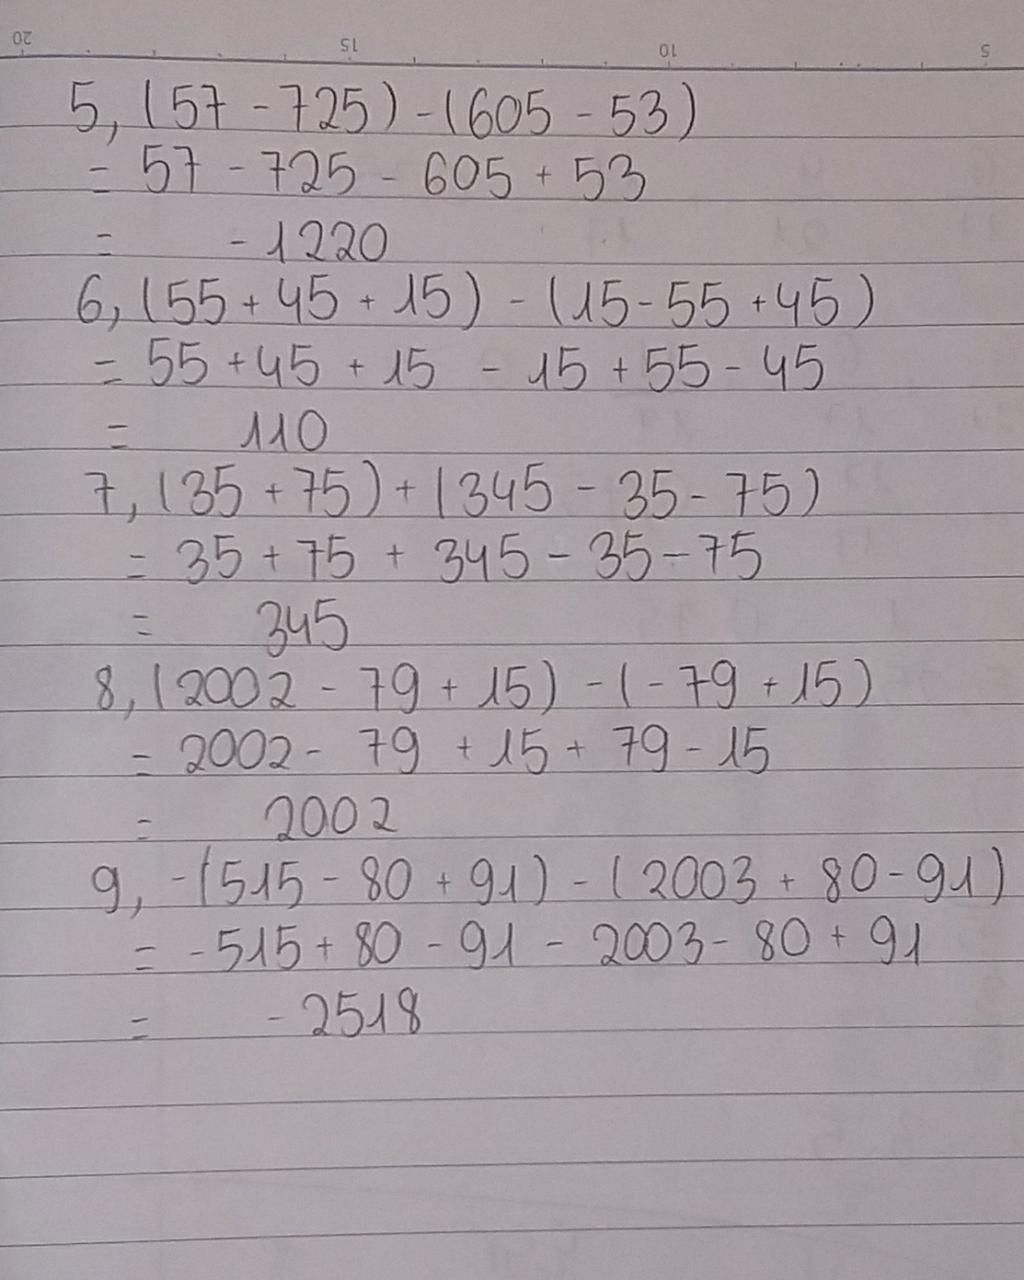 20 15 10 5
5, (57 - 725) - (605 - 53)
= 57 - 725 - 605 + 53
= - 1220
6, (55 + 45 + 15) - (15 - 55 + 45)
= 55 + 45 + 15 - 15 + 55 - 45
= 110
7, (35 + 75) + (345 - 35 - 75)
= 35 + 75 + 345 - 35 - 75
= 345
8, (2002 - 79 + 15) - (- 79 + 15)
= 2002 - 79 + 15 + 79 - 15
= 2002
9, -(515 - 80 + 91) - (2003 + 80 - 91)
= -515 + 80 - 91 - 2003 - 80 + 91
= - 2518